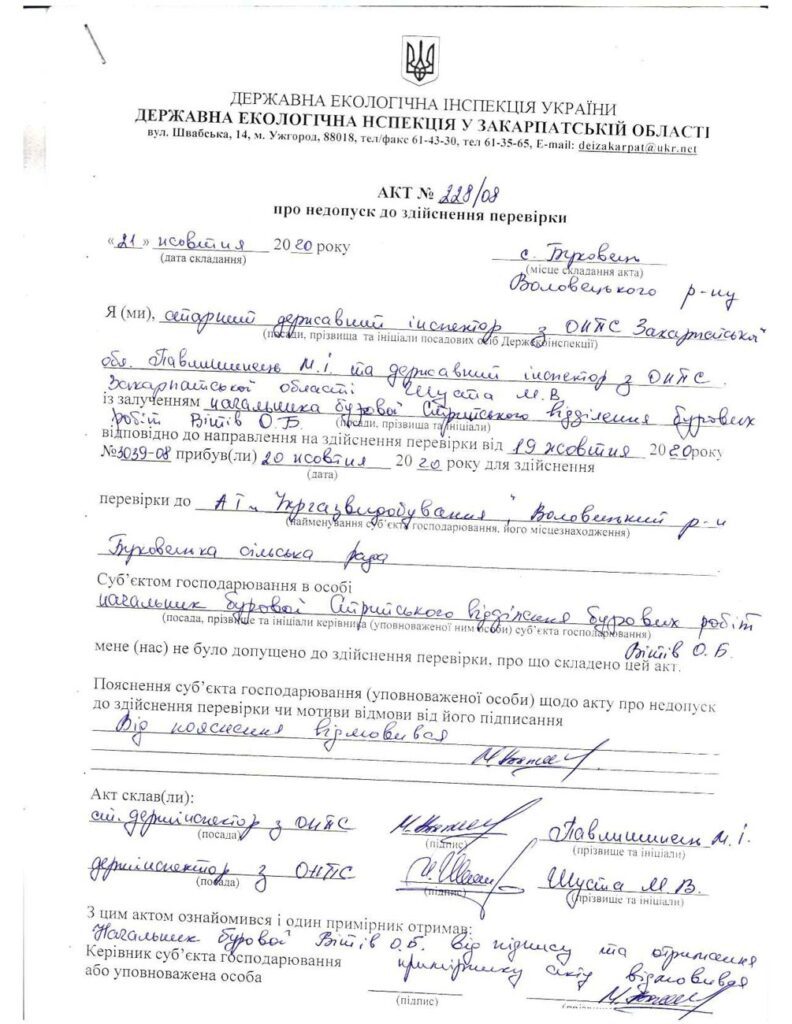 ДЕРЖАВНА ЕКОЛОГІЧНА ІНСПЕКЦІЯ УКРАЇНИ
ДЕРЖАВНА ЕКОЛОГІЧНА НСПЕКЦІЯ У ЗАКАРПАТСЬКІЙ ОБЛАСТІ
вул. Швабська, 14, м. Ужгород, 88018, тел/факс 61-43-30, тел 61-35-65, E-mail: deizakarpat@ukr.net
АКТ № 228/08
про недопуск до здійснення перевірки
«21» жовтня 2020 року с. Буковець
(дата складання) (місце складання акта)
Воловецького р-ну
Я (ми), старший державний інспектор з ОНПС Закарпатської
(посади, прізвища та ініціали посадових осіб Держекоінспекції)
обл. Павлишинець М.І. та державний інспектор з ОНПС
Закарпатської області Шуста М.В.
із залученням начальника бурової Стрийського відділення бурових
робіт Вітів О.Б. (посади, прізвища та ініціали)
відповідно до направлення на здійснення перевірки від 19 жовтня 2020 року
№3039-08 прибув(ли) 20 жовтня 2020 року для здійснення
(дата)
перевірки до АТ „Укргазвидобування", Воловецький р-н
(найменування суб'єкта господарювання, його місцезнаходження)
Буковецька сільська рада
Суб'єктом господарювання в особі
начальник бурової Стрийського відділення бурових робіт
(посада, прізвище та ініціали керівника (уповноваженої ним особи) суб'єкта господарювання)
Вітів О.Б.
мене (нас) не було допущено до здійснення перевірки, про що складено цей акт.
Пояснення суб'єкта господарювання (уповноваженої особи) щодо акту про недопуск
до здійснення перевірки чи мотиви відмови від його підписання
Від пояснення відмовився
Акт склав(ли):
ст. держінспектор з ОНПС Павлишинець М.І.
(посада) (підпис) (прізвище та ініціали)
держінспектор з ОНПС Шуста М.В.
(посада) (підпис) (прізвище та ініціали)
З цим актом ознайомився і один примірник отримав:
Начальник бурової Вітів О.Б. від підпису та отримання
Керівник суб'єкта господарювання примірнику акту відмовився
або уповноважена особа
(підпис)